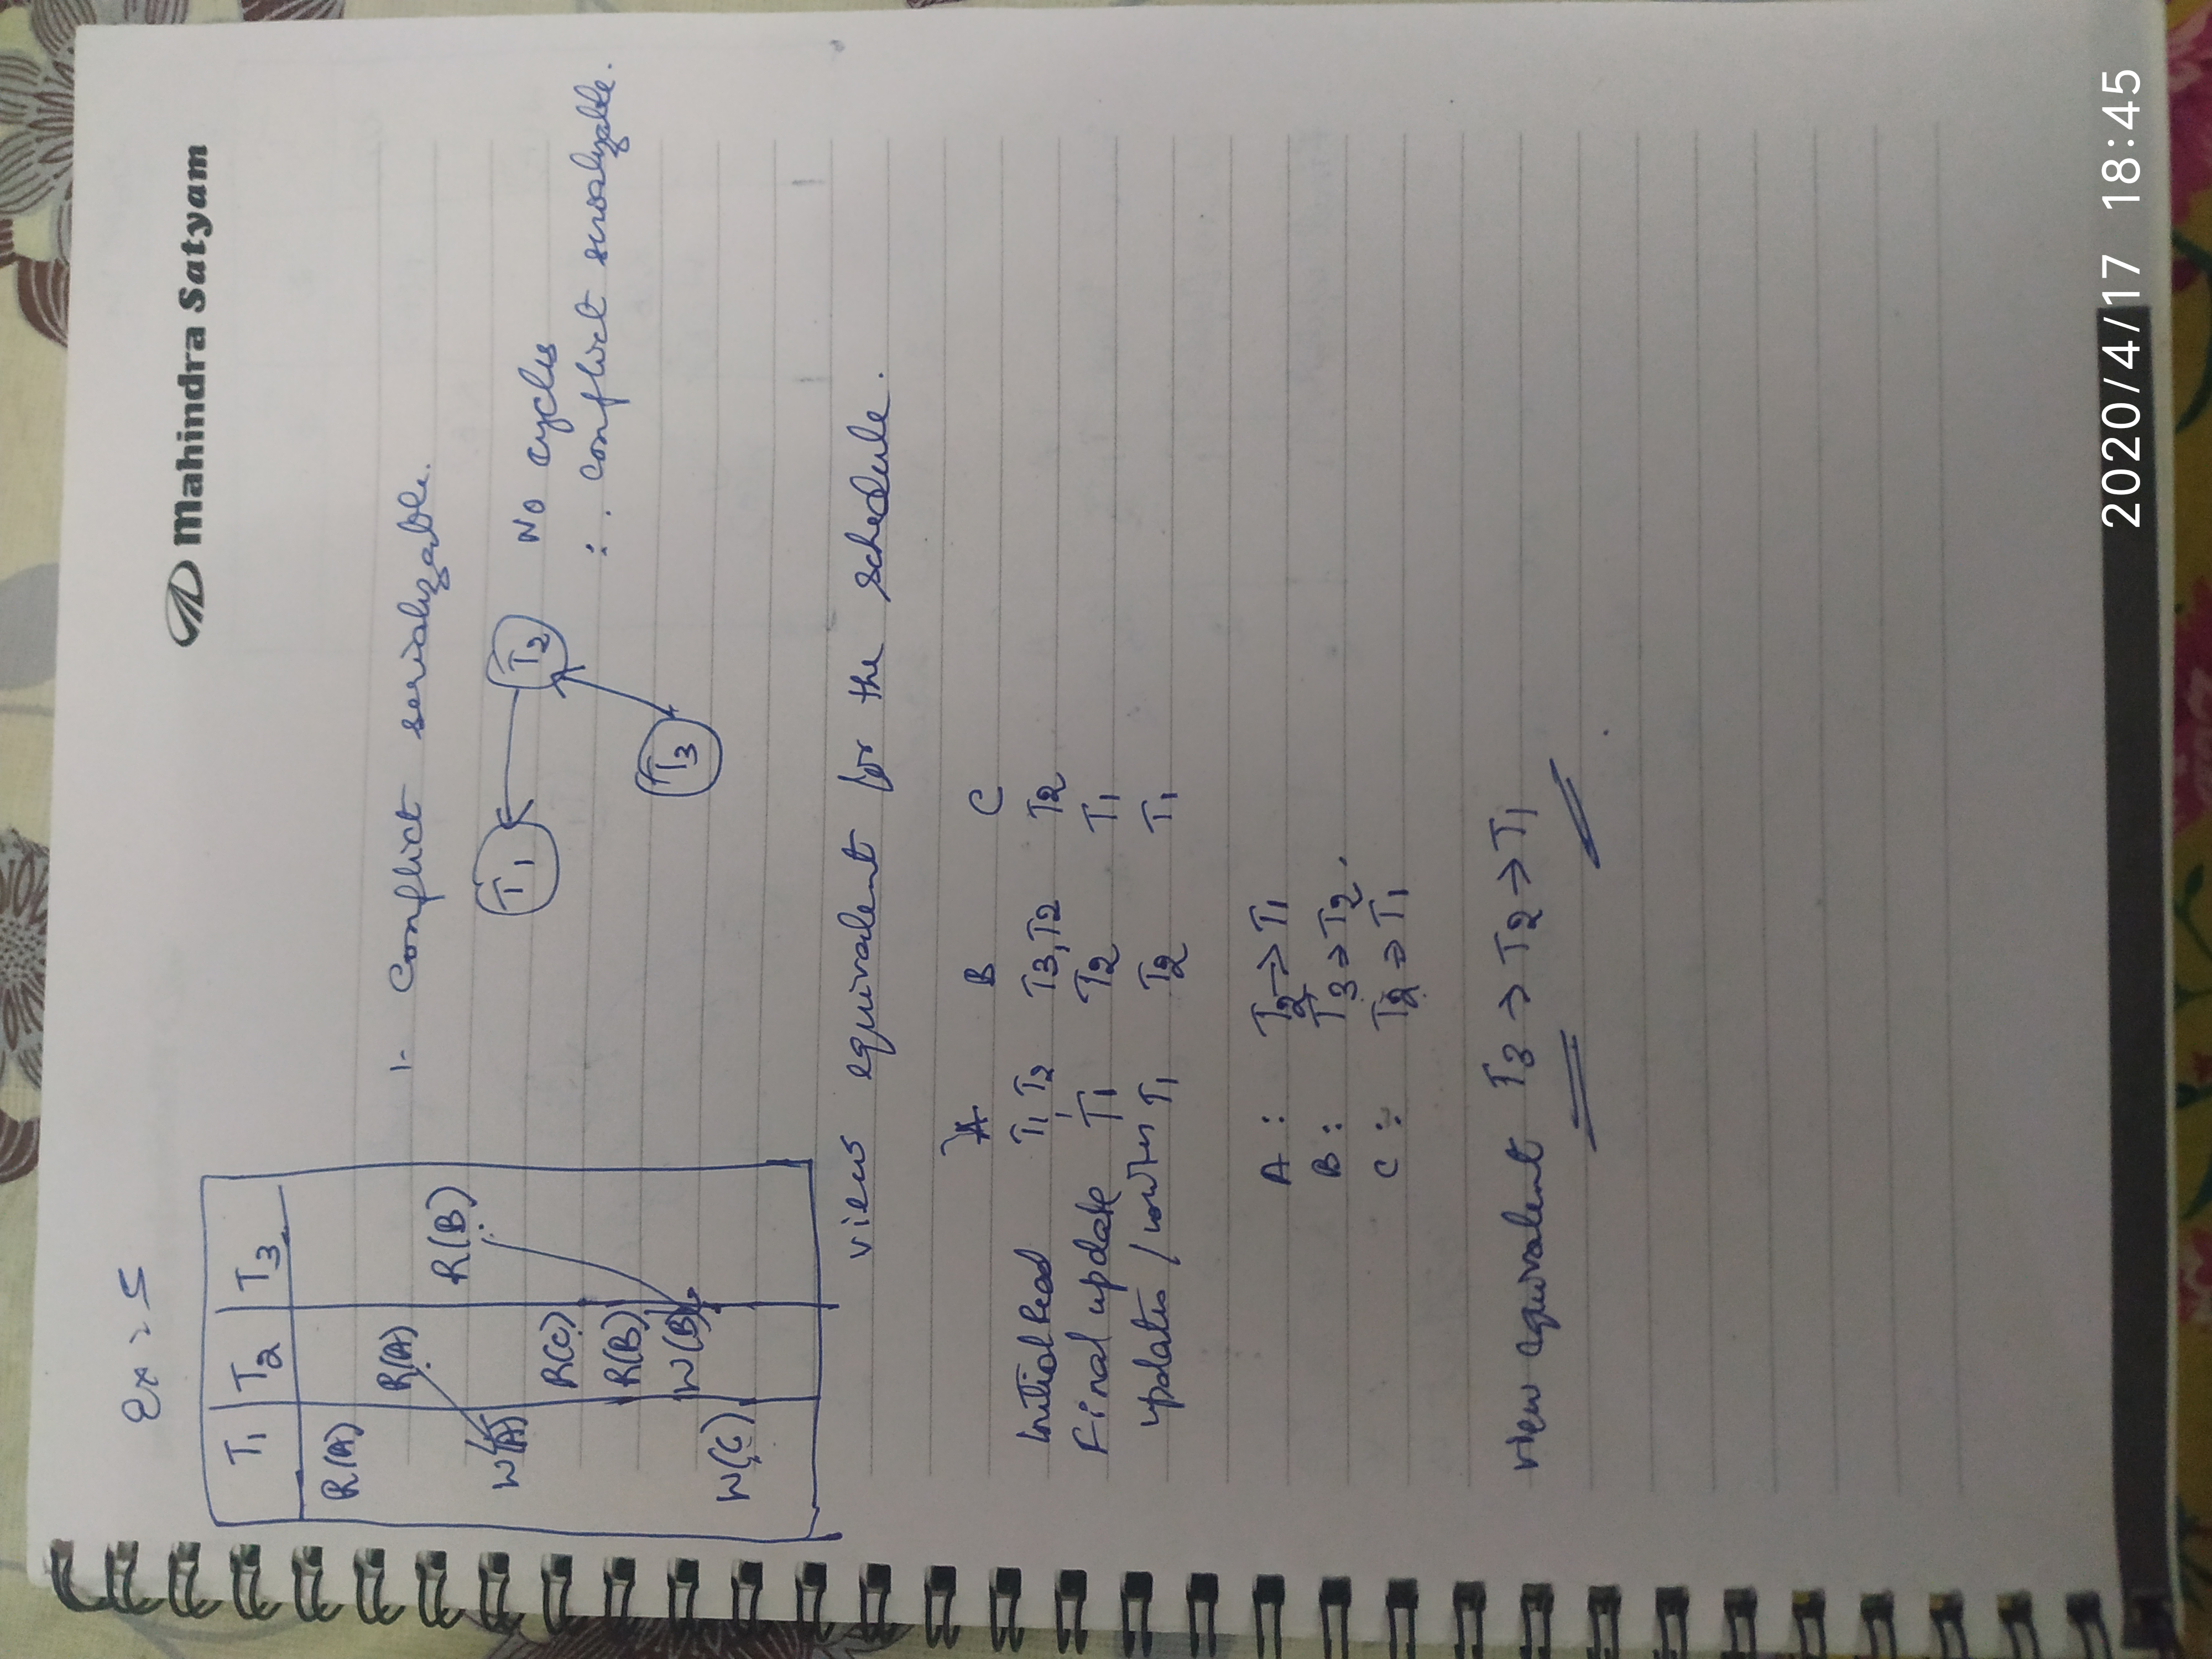 Ex = 5
Mahindra Satyam
T1 T2 T3
R(A)
R(A)
R(B)
W(A)
R(C)
R(B)
W(B)
W(C)
1- Conflict serializable.
T1 T2
T3
No cycles
∴ conflict serializable.
view equivalent for the schedule.
A B C
Initial Read T1, T2 T3, T2 T2
Final update T1 T2 T1
updates / writes T1 T2 T1
A : T2 → T1
B : T3 → T2.
C : T2 → T1
view equivalent T3 → T2 → T1
2020/4/17 18:45